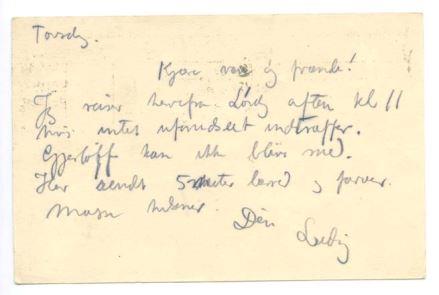 Torsdg.
Kjære ven og frænde!
Jeg reiser herfra Lørdg aften kl 11
hvis intet uforudseet indtræffer.
kan ikke bli med.
Har sendt 5 meter lærred og farver.
Mange hilsner. Din
Ludvig